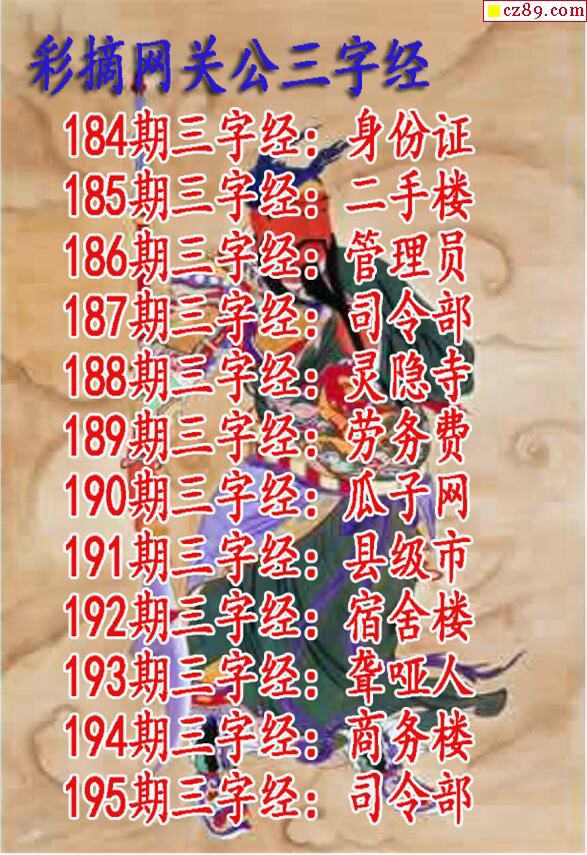 cz89.com
彩摘网关公三字经
184期三字经：身份证
185期三字经：二手楼
186期三字经：管理员
187期三字经：司令部
188期三字经：灵隐寺
189期三字经：劳务费
190期三字经：瓜子网
191期三字经：县级市
192期三字经：宿舍楼
193期三字经：聋哑人
194期三字经：商务楼
195期三字经：司令部